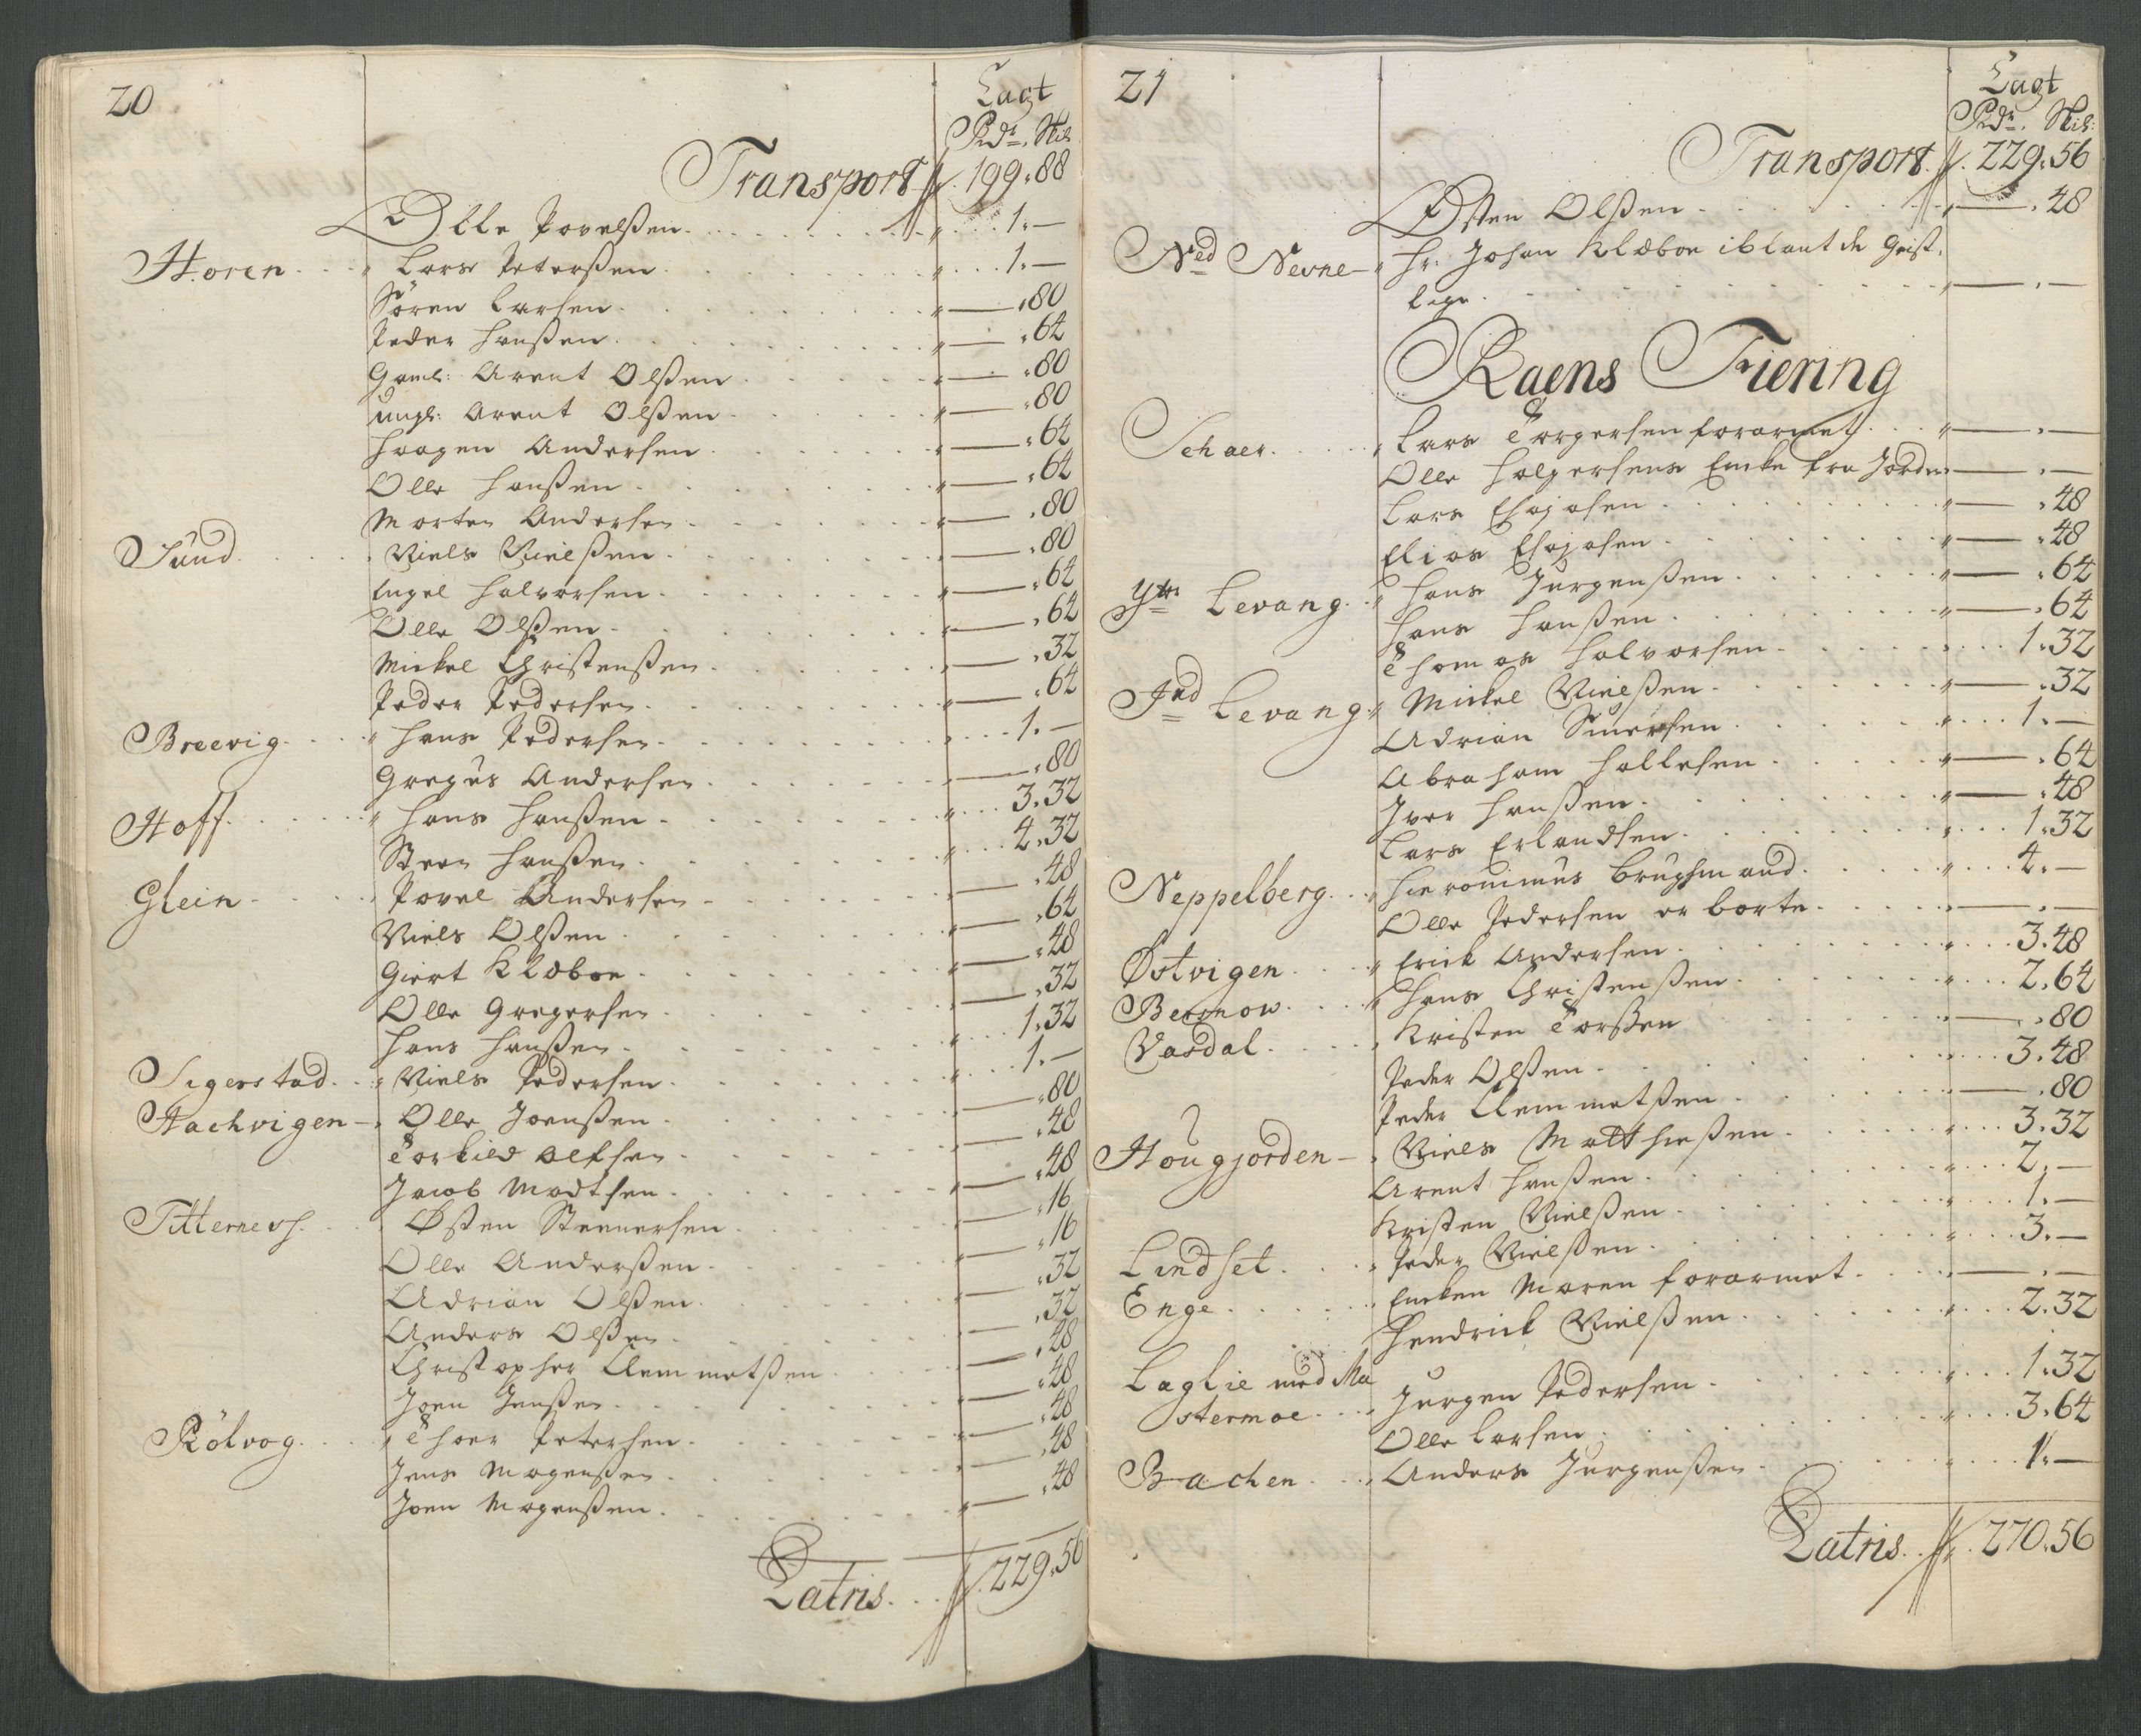 20
Lagt
Rdr. Skil:
Transport 199.88
Olle Povelßen 1.—
Horen Lars Peterßen 1.—
Sören Larsen — .80
Peder Hanßen — .64
Gaml: Arent Olßen — .80
ungl: Arent Olßen — .80
Haagen Andersen — .64
Olle Hanßen — .64
Morten Andersen — .80
Sund Niels Nielßen — .80
Engel Halvorsen — .64
Olle Olßen — .64
Mickel Christenßen — .32
Peder Pedersen — .64
Breevig Hans Pedersen 1.—
Gregus Andersen — .80
Hoff Hans Hanßen 3.32
Steen Hanßen 4.32
Glein Povel Andersen — .48
Niels Olßen — .64
Giert Klæboe — .48
Olle Gregersen — .32
Hans Hanßen 1.32
Sigerstad Niels Pedersen 1.—
Hachvigen Olle Joenßen — .80
Torkild Olefsen — .48
Jacob Madtsen — .48
Titternes Østen Steenersen — .16
Olle Anderßen — .16
Adrian Olßen — .32
Anders Olßen — .32
Christopher Clemmetßen — .48
Joen Jenßen — .48
Rölvog Thoer Petersen — .48
Jens Mogenßen — .48
Joen Mogenßen — .48
Latris 229.56
21
Lagt
Rdr. Skil:
Transport 229.56
Østen Olßen — .48
Ned Nevne Hr. Johan Klæboe iblant de Geist.
lige — . —
Raens Fiering
Schaer Lars Torgersen forarmet — . —
Olle Holgersens Encke fra Jorden — . —
Lars Esajasen — .48
Elias Esajasen — .48
Ytr Levang Hans Jurgenßen — .64
Hans Hanßen — .64
Thomas Halvorsen 1.32
Ind Levang Mickel Nielßen — .32
Adrian Siversen 1.—
Abraham Hallesen — .64
Iver Hanßen — .48
Lars Erlandsen 1.32
Neppelberg Hieronimus Brughmand 4.—
Olle Pedersen er borte — . —
Østvigen Erick Andersen 3.48
Beronow Hans Christenßen 2.64
Vasdal Kristen Torßen — .80
Peder Olßen 3.48
Peder Clemmetßen — .80
Hougjorden Niels Matthießen 3.32
Arent Hanßen 2.—
Kristen Nielßen 1.—
Lindset Peder Nielßen 3.—
Enge Encken Maren forarmet — . —
Hendrick Nielßen 2.32
Laglie med Ma
stermoe Jurgen Pedersen 1.32
Olle Larsen 3.64
Bachen Anders Jurgenßen 1.—
Latris 270.56